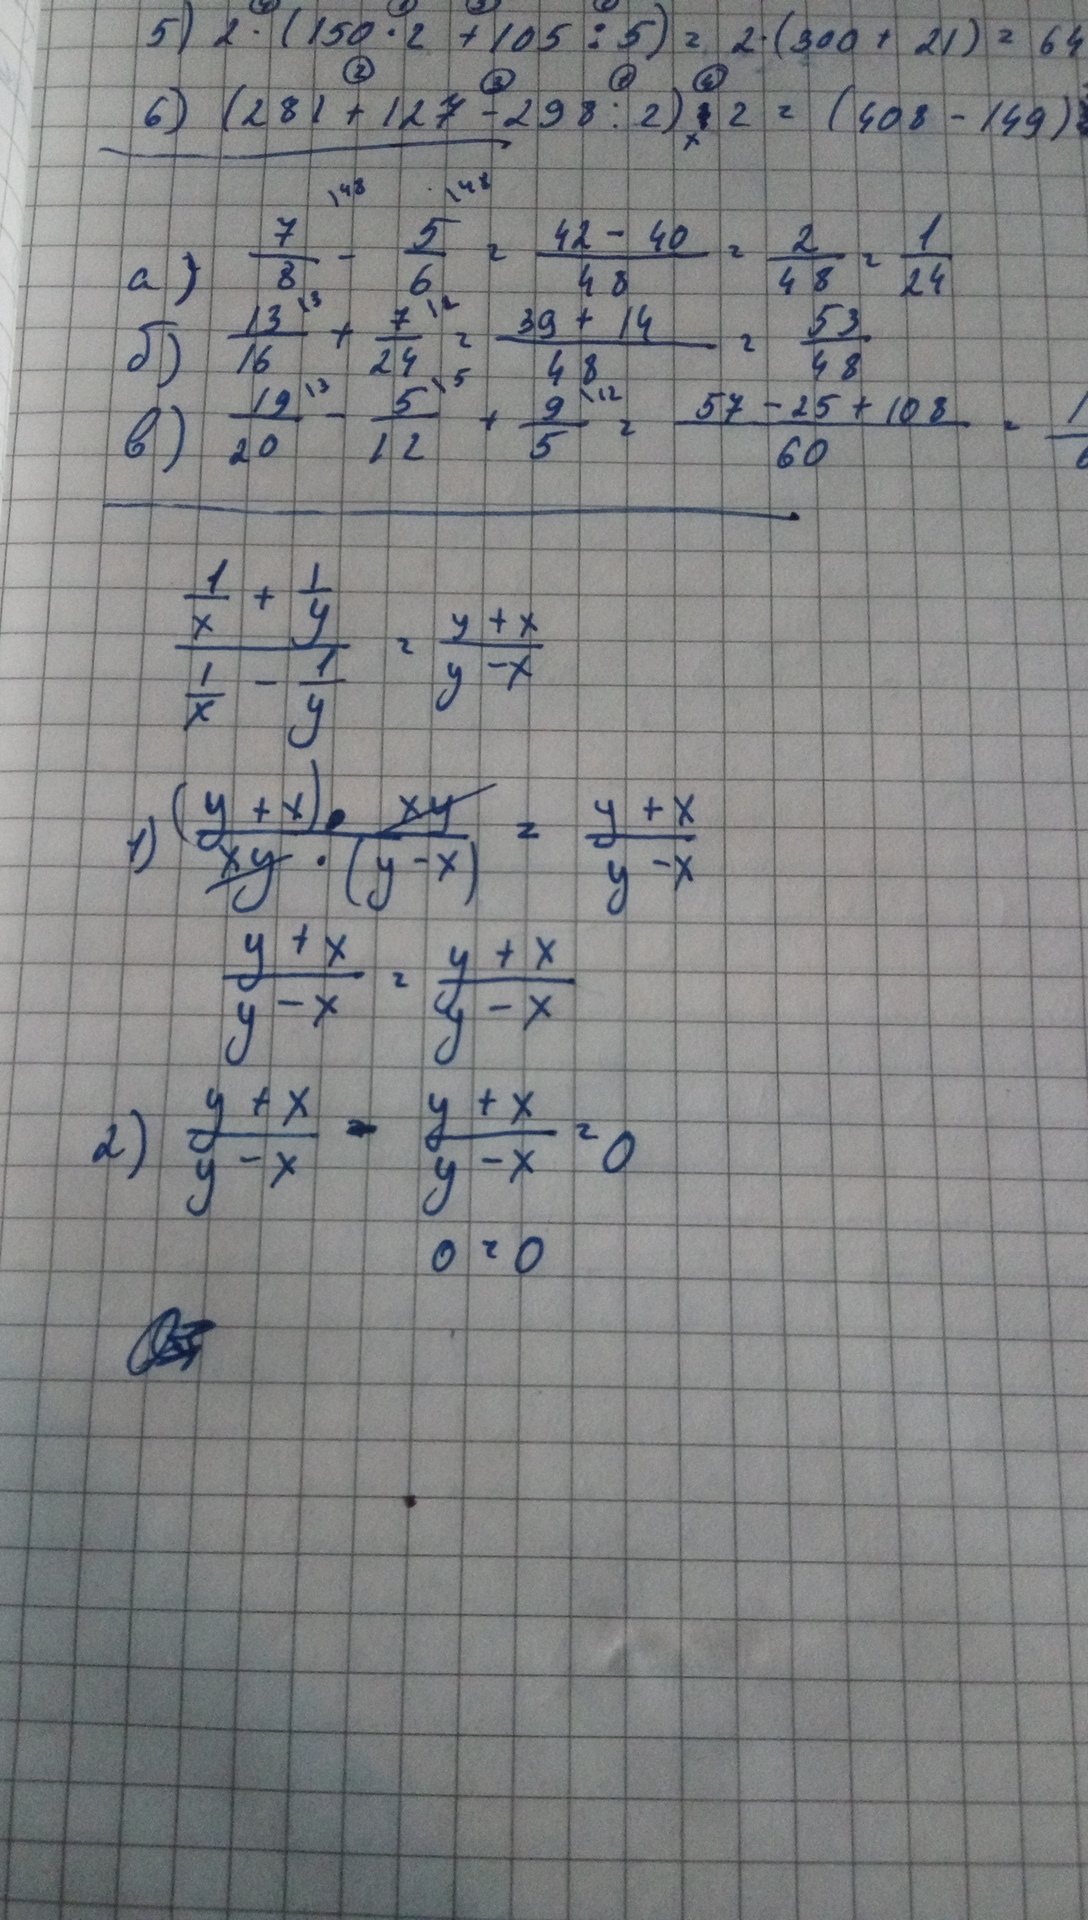 5) 2·(150·2 + 105:5) = 2·(300 + 21) = 64
6) (281 + 127 - 298:2) : 2 = (408 - 149)
а) 7/8 \48 - 5/6 \48 = (42 - 40)/48 = 2/48 = 1/24
б) 13/16 \3 + 7/24 \2 = (39 + 14)/48 = 53/48
в) 19/20 \3 - 5/12 \5 + 9/5 \12 = (57 - 25 + 108)/60 = 1/6
(1/x + 1/y)/(1/x - 1/y) = (y + x)/(y - x)
1) ((y + x) · xy)/(xy · (y - x)) = (y + x)/(y - x)
(y + x)/(y - x) = (y + x)/(y - x)
2) (y + x)/(y - x) - (y + x)/(y - x) = 0
0 = 0